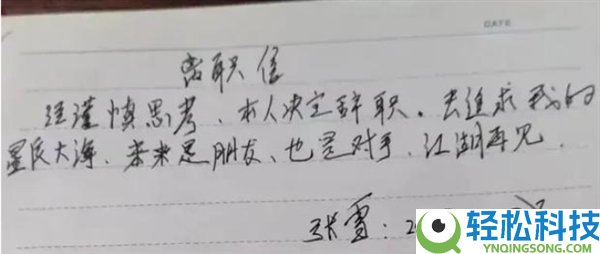 DATE
离职信
经谨慎思考，本人决定辞职。去追求我的
星辰大海，未来是朋友、也是对手，江湖再见。
张雪：2
轻松科技
YNQINGSONG.COM